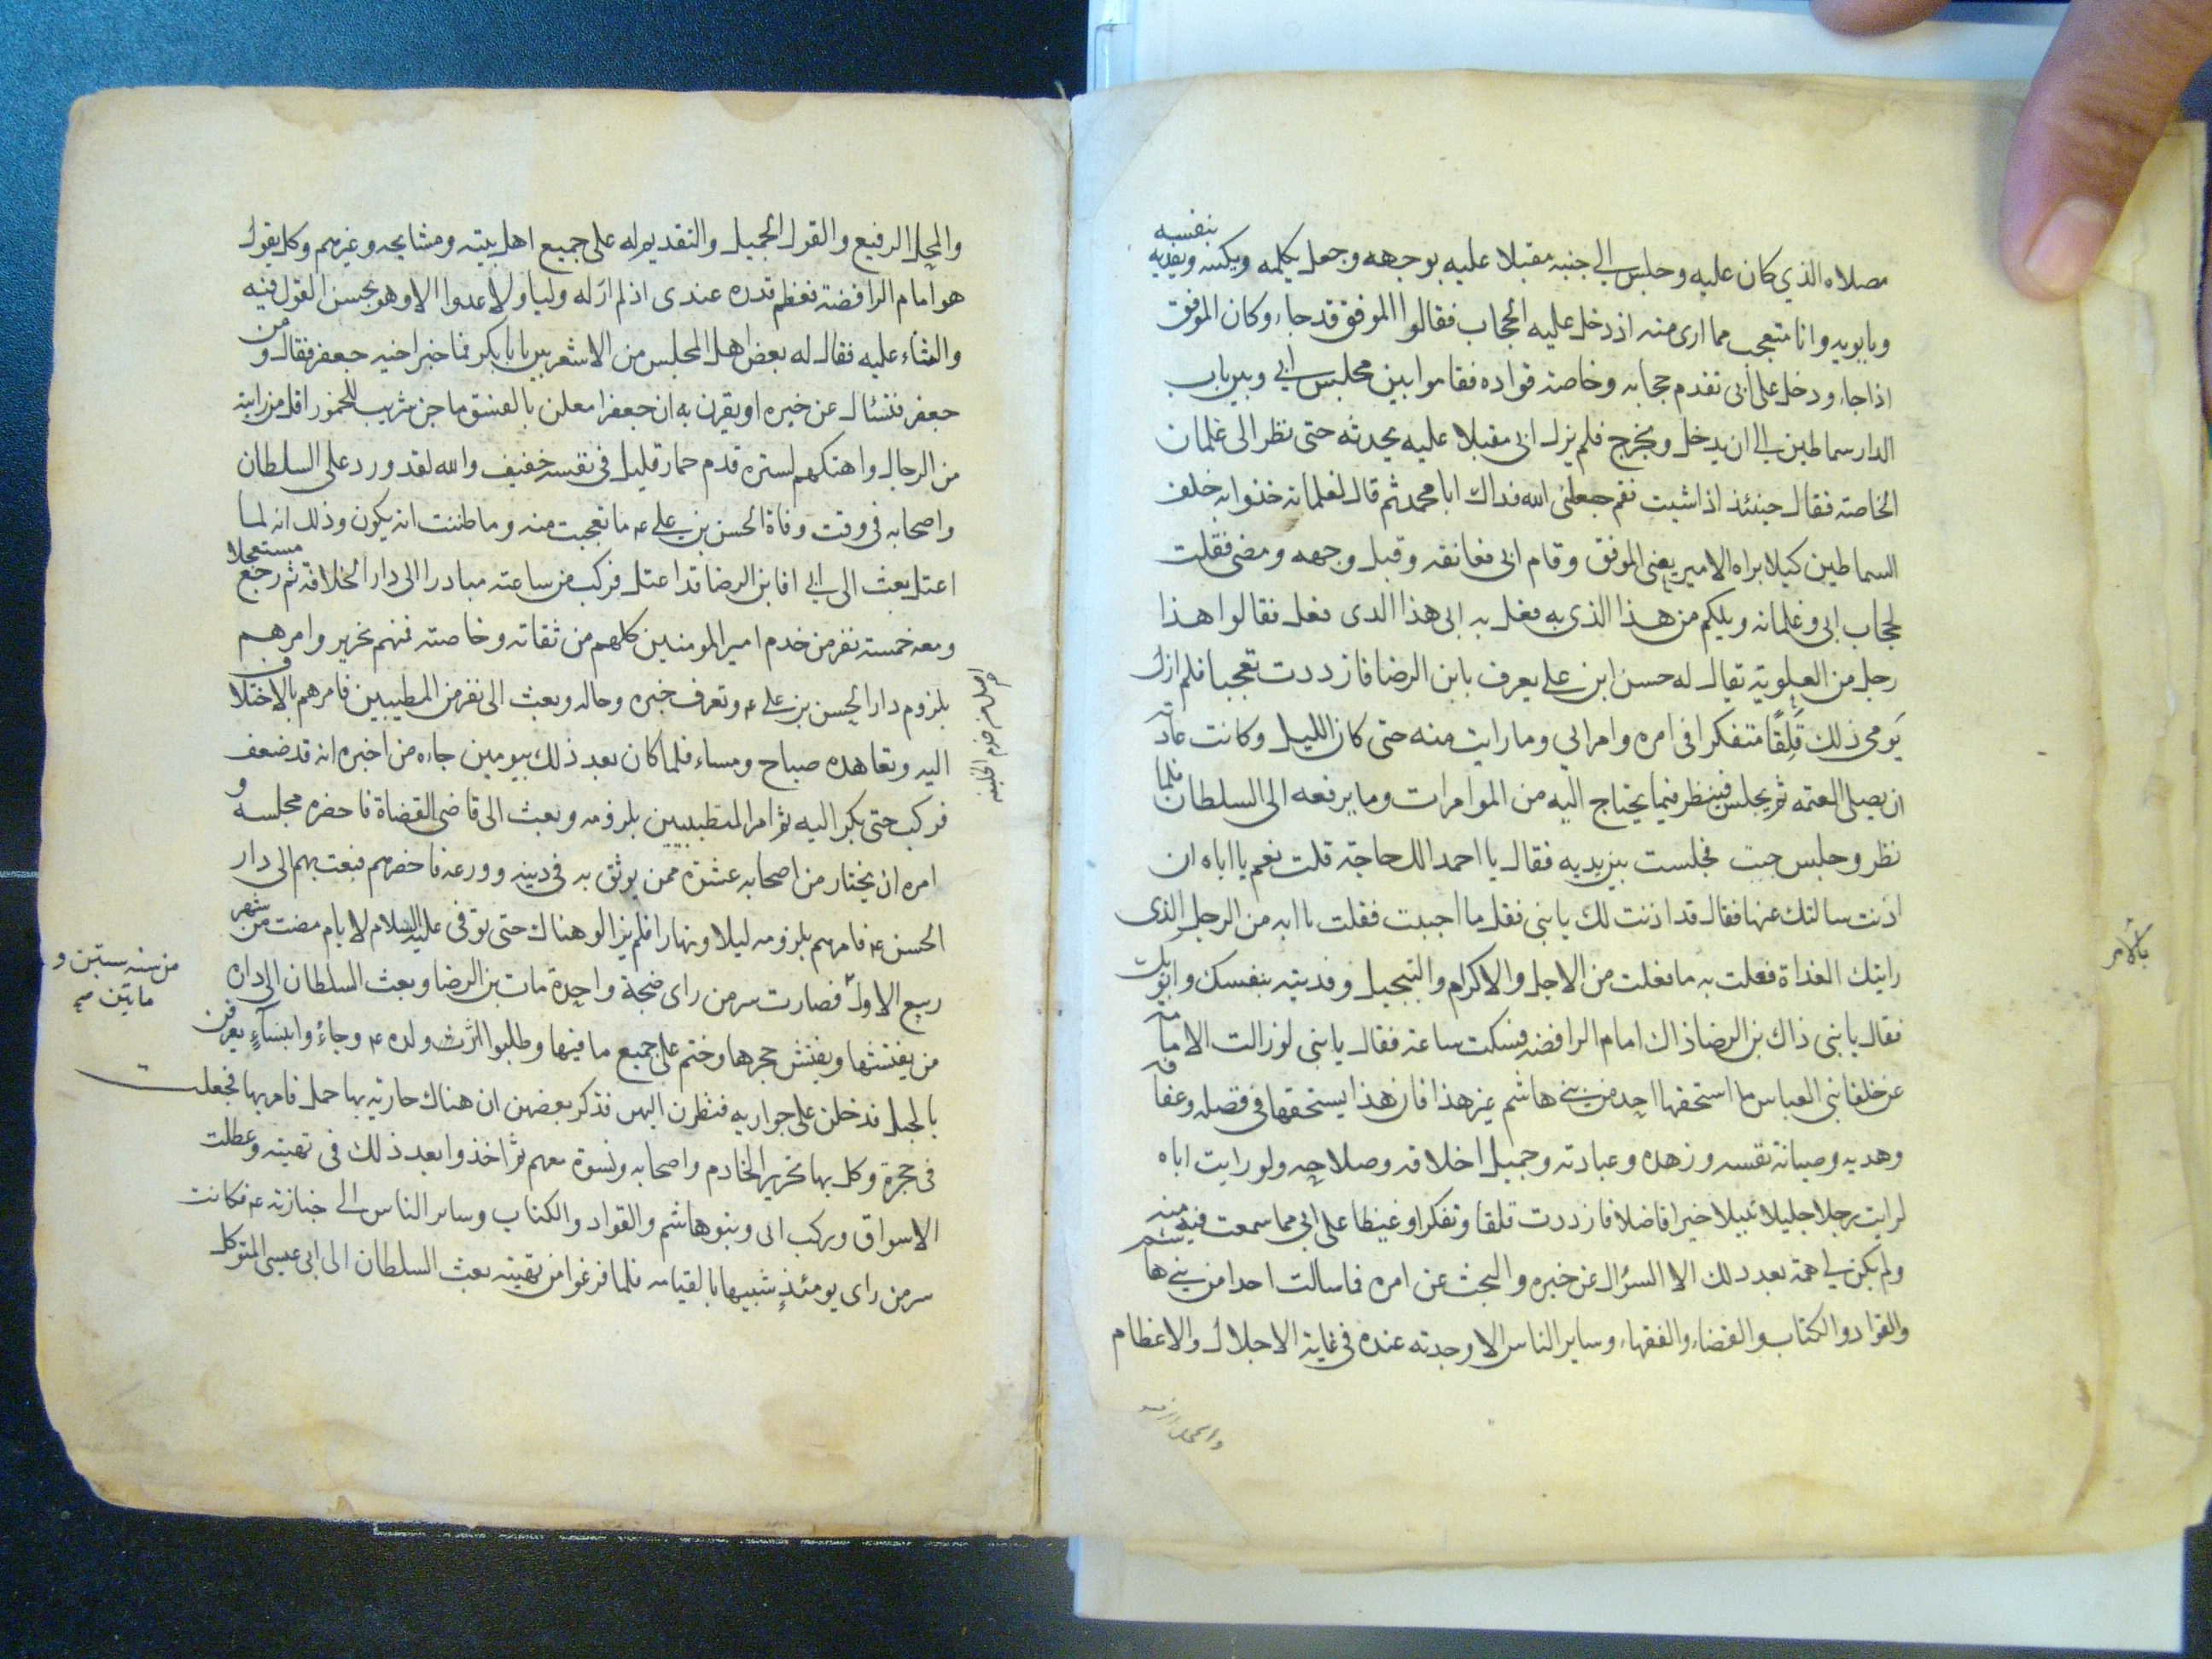 مصلاه الذي كان عليه وجلس الى جنبه مقبلا عليه بوجهه وجعل يكلمه ويكنيه ويفديه
بنفسه
وبابويه وانا متعجب مما ارى منه اذ دخل عليه الحجاب فقالوا الموفق قد جاء وكان الموفق
اذا جاء ودخل على ابى تقدم حجابه وخاصة قواده فقاموا بين مجلس ابي وبين باب
الدار سماطين الى ان يدخل ويخرج فلم يزل ابى مقبلا عليه يحدثه حتى نظر الى غلمان
الخاصة فقال حينئذ اذا شيت فقم جعلنى الله فداك ابا محمد ثم قال لغلمانه خذوا به خلف
السماطين كيلا يراه الامير يعنى الموفق وقام ابى فعانقه وقبل وجهه ومضى فقلت
لحجاب ابى وغلمانه ويلكم من هذا الذى به فعل به ابى هذا الذى فعل فقالوا هذا
رجل من العلوية يقال له حسن ابن على يعرف بابن الرضا فازددت تعجبا فلم ازل
يَومى ذلك قَلِقًا متفكرا فى امره وامر ابي وما رايت منه حتى كان الليل وكانت عادته
ان يصلى العتمة ثم يجلس فينظر فيما يحتاج اليه من الموامرات وما يرفعه الى السلطان فلما
نظر وجلس جيت فجلست بين يديه فقال يا احمد الك حاجة قلت نعم يا اباه ان
اذنت سالتك عنها فقال قد اذنت لك يا بنى فقل ما احببت فقلت يا ابه من الرجل الذى
رايتك الغداة فعلت به ما فعلت من الاجلال والاكرام والتبجيل وفديته بنفسك وابويك
فقال يا بنى ذاك بن الرضا ذاك امام الرافضه فسكت ساعة فقال يا بنى لو زالت الامامة
عن خلفا بنى العباس ما استحقها احد من بنى هاشم غير هذا فان هذا يستحقها فى فضله وعفافه
وهديه وصيانة نفسه وزهده وعبادته وجميل اخلاقه وصلاحه ولو رايت اباه
لرايت رجلا جليلا نبيلا خيرا فاضلا فازددت قلقا وتفكرا وغيظا على ابى مما سمعت فيه منه
ولم يكن لى همة بعد ذلك الا السؤال عن خبره والبحث عن امره فما سالت احدا من بنى هاشم
والقواد والكتاب والقضاء والفقهاء وساير الناس الا وجدته عنده فى غاية الاجلال والاعظام
بالامر
والمحل الرفيع
والمحل الرفيع والقول الجميل والتقديم له على جميع اهل بيته ومشايخه وغيرهم وكل يقول
هو امام الرافضة فعظم قدره عندى اذ لم ار له وليا ولا عدوا الا وهو يحسن القول فيه
والثناء عليه فقال له بعض اهل المجلس من الاشعريين يا بابكر فما خبر اخيه جعفر فقال ومن
جعفر فتسئال عن خبره او يقرن به ان جعفرا معلن بالفسق ماجن شريب للخمور اقل من رايته
من الرجال واهتكهم لستره قدم حمار قليل فى نفسه خفيف والله لقد ورد على السلطان
واصحابه فى وقت وفاة الحسن بن على ع ما تعجبت منه وما ظننت انه يكون وذلك انه لما
اعتل بعث الى ابى ان ابن الرضا قد اعتل فركب من ساعته مبادرا الى دار الخلافة ثم رجع مستعجلا
ومعه خمسة نفر من خدم امير المومنين كلهم من ثقاته وخاصته فمنهم نحرير وامرهم
بلزوم دار الحسن بن على ع وتعرف خبره وحاله وبعث الى نفر من المطببين فامرهم بالاختلاف
اليه وتعاهده صباح ومساء فلما كان بعد ذلك بيومين جاءه من اخبره انه قد ضعف
فركب حتى بكر اليه ثم امر المتطببين بلزومه وبعث الى قاضى القضاة فاحضره مجلسه و
امره ان يختار من اصحابه عشرة ممن يوثق به فى دينه وورعه فاحضرهم فبعث بهم الى دار
الحسن ع فامرهم بلزومه ليلا ونهارا فلم يزالوا هناك حتى توفى عليه السلام لايام مضت من شهر
ربيع الاول فصارت سر من راى ضجة واحدة مات بن الرضا وبعث السلطان الى داره
من يفتشها ويفتش حجرها وختم على جميع ما فيها وطلبوا اثر ولده ع وجاؤا بنساءٍ يعرفن
بالحبل فدخلن على جواريه فنظرن اليهن فذكر بعضهن ان هناك جارية بها حمل فامر بها فجعلت
فى حجرة وكل بها نحرير الخادم واصحابه ونسوة معهم ثم اخذوا بعد ذلك فى تهيته وعطلت
الاسواق وركب ابى وبنو هاشم والقواد والكتاب وساير الناس الى جنازته ع فكانت
سر من راى يومئذٍ شبيها بالقيامه فلما فرغوا من تهيته بعث السلطان الى ابى عيسى المتوكل
من سنه ستين و
ماتين